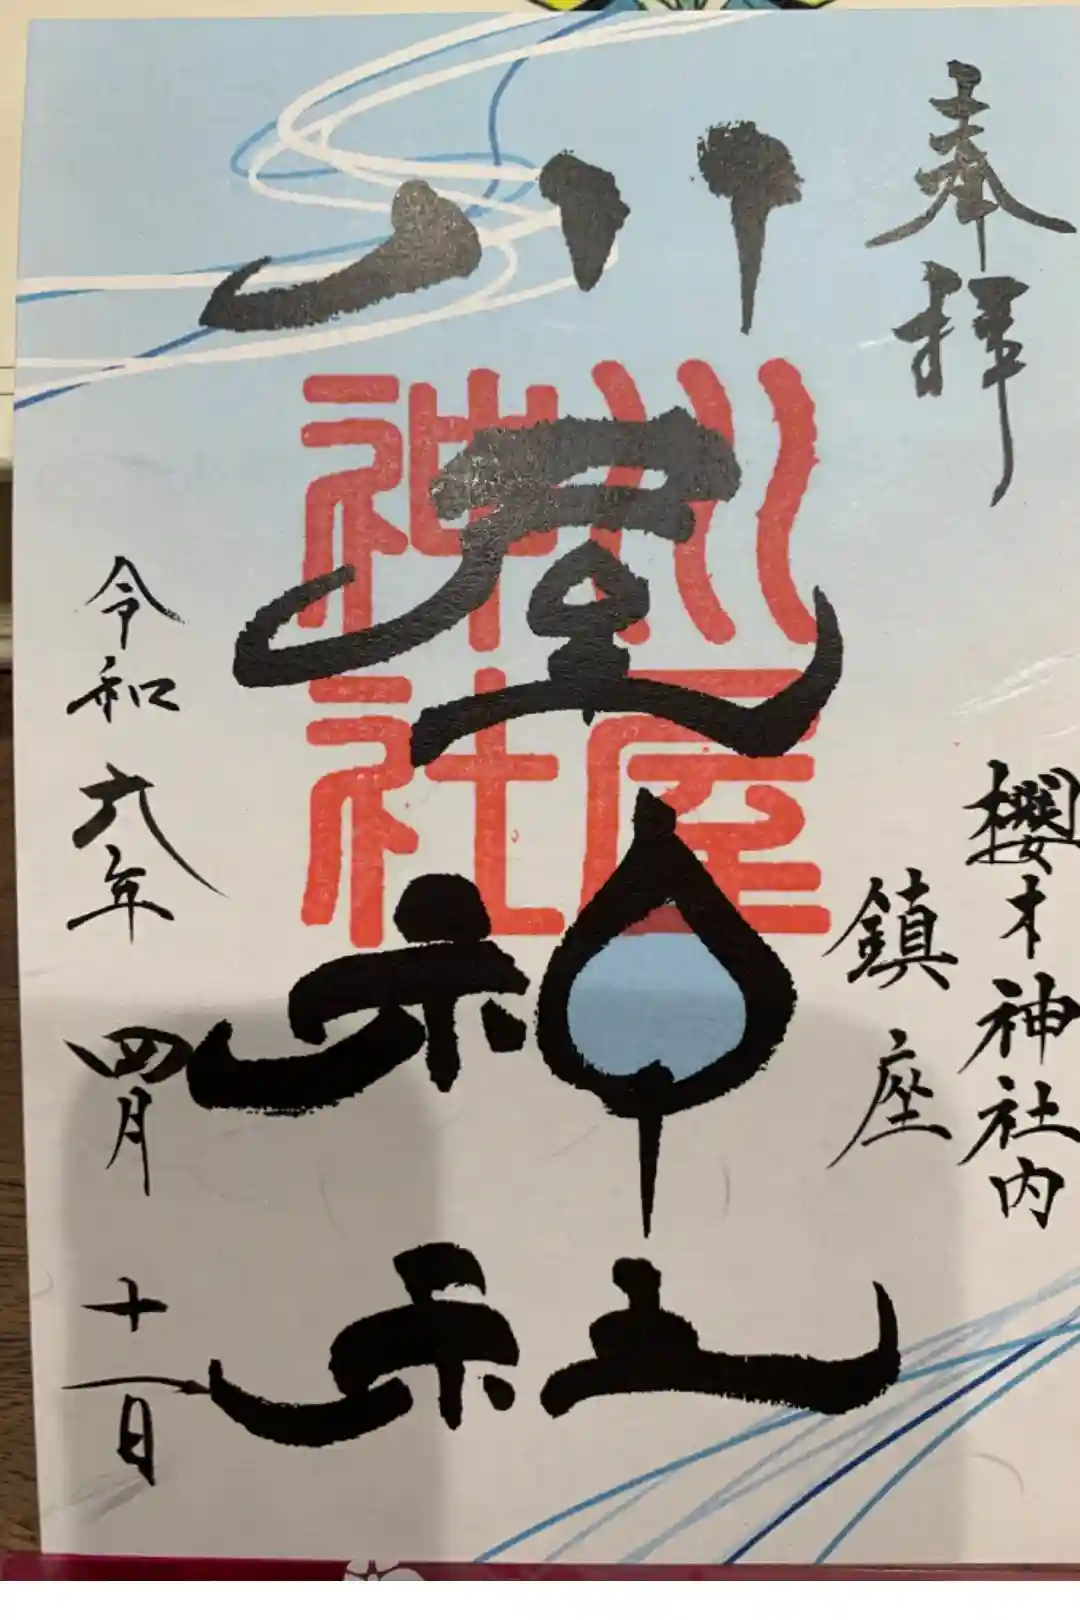 奉拝
櫻木神社内
鎮座
川屋神社
川屋神社
令和六年四月十一日